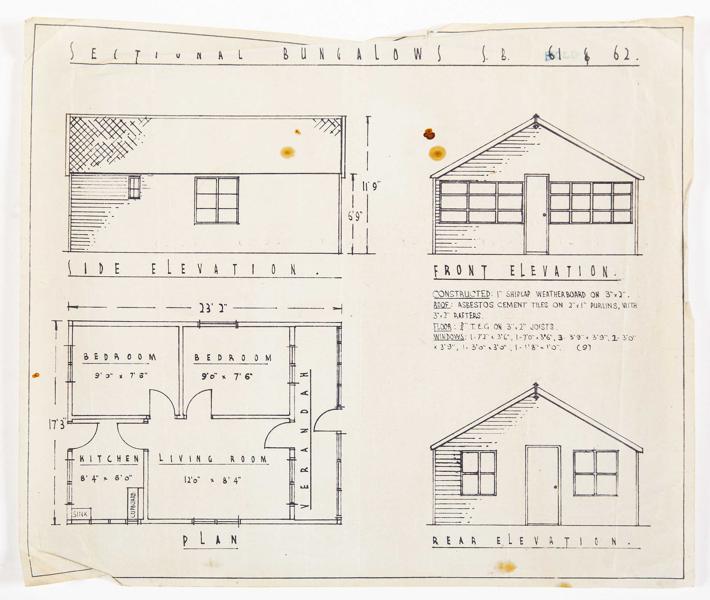 SECTIONAL BUNGALOWS S.B. 61 & 62.
11'9"
6'9"
SIDE ELEVATION.
FRONT ELEVATION.
CONSTRUCTED: 1" SHIPLAP WEATHERBOARD ON 3"x2".
ROOF: ASBESTOS CEMENT TILES ON 2"x1" PURLINS, WITH
3"x2" RAFTERS.
FLOOR: T.&G ON 3"x2" JOISTS.
WINDOWS: 1-7'2"x3'6", 1-7'0"x3'6", 3-3'9"x3'9", 2-3'0"
x3'9", 1-3'0"x3'0", 1-1'8"x1'0". (9)
23' 2"
17'3"
BEDROOM
BEDROOM
9'0" x 7'6"
9'0" x 7'6"
VERANDAH
KITCHEN
LIVING ROOM
8'4" x 6'0"
12'0" x 8'4"
SINK
CUPBOARD
PLAN
REAR ELEVATION.